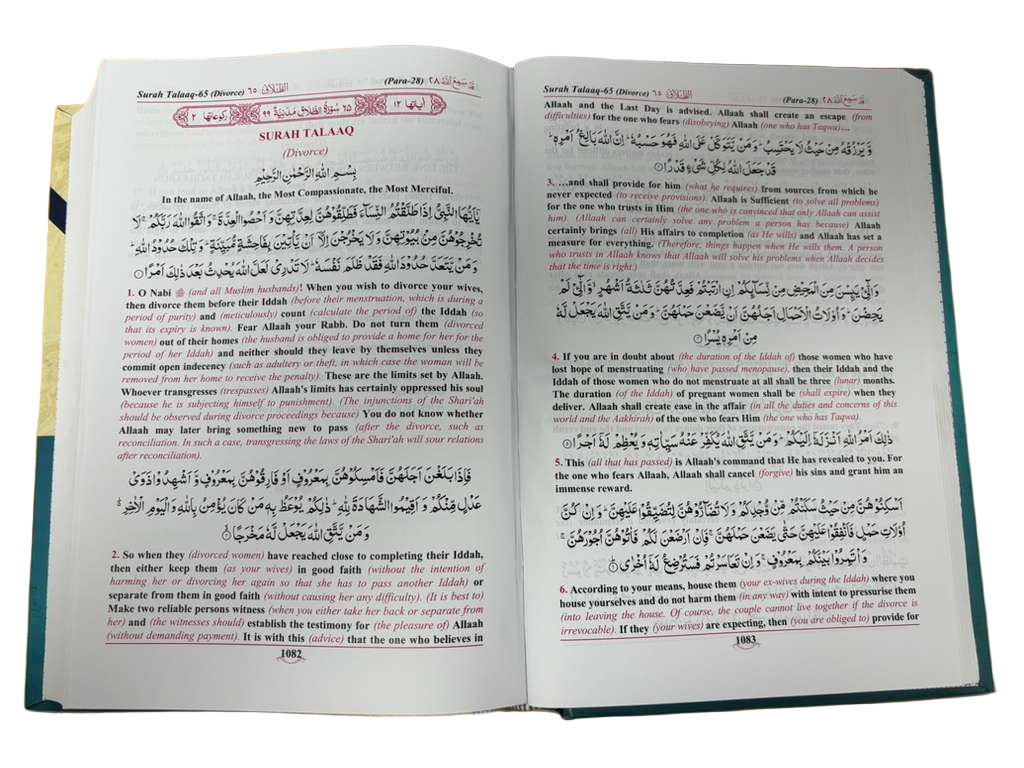 Surah Talaaq-65 (Divorce) ٦٥ الطلاق
(Para-28) قد سمع الله ٢٨
اٰیاتها ١٢
٦٥ سُوْرَةُ الطَّلَاقِ مَدَنِيَّةٌ ٩٩
رکوعاتها ٢
SURAH TALAAQ
(Divorce)
بِسْمِ اللهِ الرَّحْمٰنِ الرَّحِيْمِ
In the name of Allaah, the Most Compassionate, the Most Merciful.
يٰۤاَيُّهَا النَّبِىُّ اِذَا طَلَّقْتُمُ النِّسَآءَ فَطَلِّقُوْهُنَّ لِعِدَّتِهِنَّ وَاَحْصُوا الْعِدَّةَ ۚ وَاتَّقُوا اللهَ رَبَّكُمْ ۚ لَا
تُخْرِجُوْهُنَّ مِنْۢ بُيُوْتِهِنَّ وَلَا يَخْرُجْنَ اِلَّاۤ اَنْ يَّاْتِيْنَ بِفَاحِشَةٍ مُّبَيِّنَةٍ ؕ وَتِلْكَ حُدُوْدُ اللهِ ؕ
وَمَنْ يَّتَعَدَّ حُدُوْدَ اللهِ فَقَدْ ظَلَمَ نَفْسَهٗ ؕ لَا تَدْرِىْ لَعَلَّ اللهَ يُحْدِثُ بَعْدَ ذٰلِكَ اَمْرًا ١
1. O Nabi ﷺ (and all Muslim husbands)! When you wish to divorce your wives,
then divorce them before their Iddah (before their menstruation, which is during a
period of purity) and (meticulously) count (calculate the period of) the Iddah (so
that its expiry is known). Fear Allaah your Rabb. Do not turn them (divorced
women) out of their homes (the husband is obliged to provide a home for her for the
period of her Iddah) and neither should they leave by themselves unless they
commit open indecency (such as adultery or theft, in which case the woman will be
removed from her home to receive the penalty). These are the limits set by Allaah.
Whoever transgresses (trespasses) Allaah's limits has certainly oppressed his soul
(because he is subjecting himself to punishment). (The injunctions of the Shari'ah
should be observed during divorce proceedings because) You do not know whether
Allaah may later bring something new to pass (after the divorce, such as
reconciliation. In such a case, transgressing the laws of the Shari'ah will sour relations
after reconciliation).
فَاِذَا بَلَغْنَ اَجَلَهُنَّ فَاَمْسِكُوْهُنَّ بِمَعْرُوْفٍ اَوْ فَارِقُوْهُنَّ بِمَعْرُوْفٍ وَّاَشْهِدُوْا ذَوَىْ
عَدْلٍ مِّنْكُمْ وَاَقِيْمُوا الشَّهَادَةَ لِلّٰهِ ؕ ذٰلِكُمْ يُوْعَظُ بِهٖ مَنْ كَانَ يُؤْمِنُ بِاللهِ وَالْيَوْمِ الْاٰخِرِ ؕ
وَمَنْ يَّتَّقِ اللهَ يَجْعَلْ لَّهٗ مَخْرَجًا ٢
2. So when they (divorced women) have reached close to completing their Iddah,
then either keep them (as your wives) in good faith (without the intention of
harming her or divorcing her again so that she has to pass another Iddah) or
separate from them in good faith (without causing her any difficulty). (It is best to)
Make two reliable persons witness (when you either take her back or separate from
her) and (the witnesses should) establish the testimony for (the pleasure of) Allaah
(without demanding payment). It is with this (advice) that the one who believes in
1082
Surah Talaaq-65 (Divorce) ٦٥ الطلاق
(Para-28) قد سمع الله ٢٨
Allaah and the Last Day is advised. Allaah shall create an escape (from
difficulties) for the one who fears (disobeying) Allaah (one who has Taqwa)...
وَّيَرْزُقْهُ مِنْ حَيْثُ لَا يَحْتَسِبُ ؕ وَمَنْ يَّتَوَكَّلْ عَلَى اللهِ فَهُوَ حَسْبُهٗ ؕ اِنَّ اللهَ بَالِغُ اَمْرِهٖ ؕ
قَدْ جَعَلَ اللهُ لِكُلِّ شَىْءٍ قَدْرًا ٣
3. ...and shall provide for him (what he requires) from sources from which he
never expected (to receive provisions). Allaah is Sufficient (to solve all problems)
for the one who trusts in Him (the one who is convinced that only Allaah can assist
him). (Allaah can certainly solve any problem a person has because) Allaah
certainly brings (all) His affairs to completion (as He wills) and Allaah has set a
measure for everything. (Therefore, things happen when He wills them. A person
who trusts in Allaah knows that Allaah will solve his problems when Allaah decides
that the time is right.)
وَالّٰٓـىِٔىْ يَئِسْنَ مِنَ الْمَحِيْضِ مِنْ نِّسَآئِكُمْ اِنِ ارْتَبْتُمْ فَعِدَّتُهُنَّ ثَلٰثَةُ اَشْهُرٍ ۙ وَّالّٰٓـىِٔىْ لَمْ
يَحِضْنَ ؕ وَاُولَاتُ الْاَحْمَالِ اَجَلُهُنَّ اَنْ يَّضَعْنَ حَمْلَهُنَّ ؕ وَمَنْ يَّتَّقِ اللهَ يَجْعَلْ لَّهٗ
مِنْ اَمْرِهٖ يُسْرًا ٤
4. If you are in doubt about (the duration of the Iddah of) those women who have
lost hope of menstruating (who have passed menopause), then their Iddah and the
Iddah of those women who do not menstruate at all shall be three (lunar) months.
The duration (of the Iddah) of pregnant women shall be (shall expire) when they
deliver. Allaah shall create ease in the affair (in all the duties and concerns of this
world and the Aakhirah) of the one who fears Him (the one who has Taqwa).
ذٰلِكَ اَمْرُ اللهِ اَنْزَلَهٗۤ اِلَيْكُمْ ؕ وَمَنْ يَّتَّقِ اللهَ يُكَفِّرْ عَنْهُ سَيِّاٰتِهٖ وَيُعْظِمْ لَهٗۤ اَجْرًا ٥
5. This (all that has passed) is Allaah's command that He has revealed to you. For
the one who fears Allaah, Allaah shall cancel (forgive) his sins and grant him an
immense reward.
اَسْكِنُوْهُنَّ مِنْ حَيْثُ سَكَنْتُمْ مِّنْ وُّجْدِكُمْ وَلَا تُضَآرُّوْهُنَّ لِتُضَيِّقُوْا عَلَيْهِنَّ ؕ وَاِنْ كُنَّ
اُولَاتِ حَمْلٍ فَاَنْفِقُوْا عَلَيْهِنَّ حَتّٰى يَضَعْنَ حَمْلَهُنَّ ۚ فَاِنْ اَرْضَعْنَ لَكُمْ فَاٰتُوْهُنَّ اُجُوْرَهُنَّ ۚ
وَاْتَمِرُوْا بَيْنَكُمْ بِمَعْرُوْفٍ ۚ وَاِنْ تَعَاسَرْتُمْ فَسَتُرْضِعُ لَهٗۤ اُخْرٰى ٦
6. According to your means, house them (your ex-wives during the Iddah) where you
house yourselves and do not harm them (in any way) with intent to pressurise them
(into leaving the house. Of course, the couple cannot live together if the divorce is
irrevocable). If they (your wives) are expecting, then (you are obliged to) provide for
1083